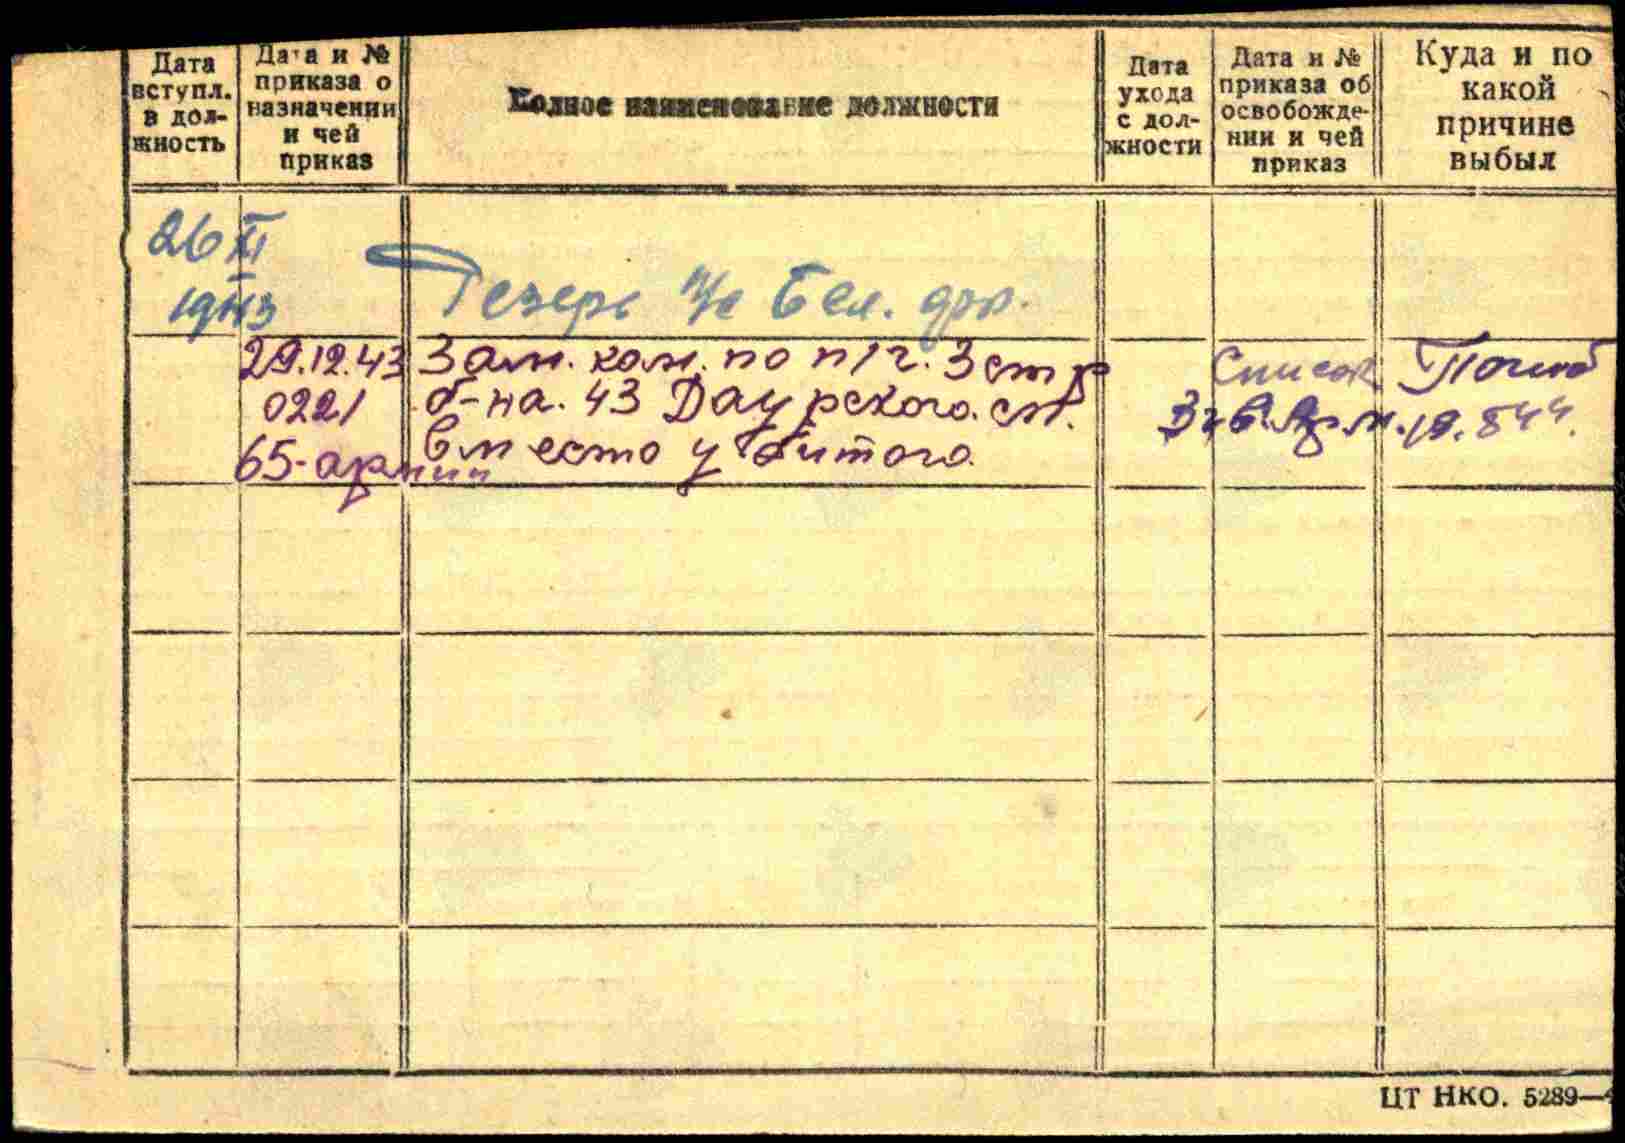 Дата
вступл.
в дол-
жность
Дата и №
приказа о
назначении
и чей
приказ
Полное наименование должности
Дата
ухода
с дол-
жности
Дата и №
приказа об
освобожде-
нии и чей
приказ
Куда и по
какой
причине
выбыл
26 XI
1943
Резерв п/с Бел. фр.
29.12.43
0221
65-армии
Зам. ком. по п/ч. 3 стр
б-на. 43 Даурского. сп.
вместо убитого.
Список
Погиб
19.8.44.
ЦТ НКО. 5289—4